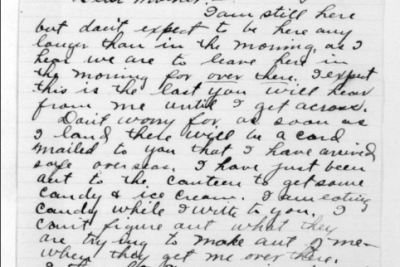 Dear Mother: -
I am still here
but don't expect to be here any
longer than in the morning, as I
hear we are to leave here in
the morning for over there. I expect
this is the last you will hear
from me until I get across.
Don't worry for as soon as
I land there will be a card
mailed to you that I have arrived
safe overseas. I have just been
out to the canteen to get some
candy & ice cream. I am eating
candy while I write to you. I
can't figure out what they
are trying to make out of me
when they get me over there.